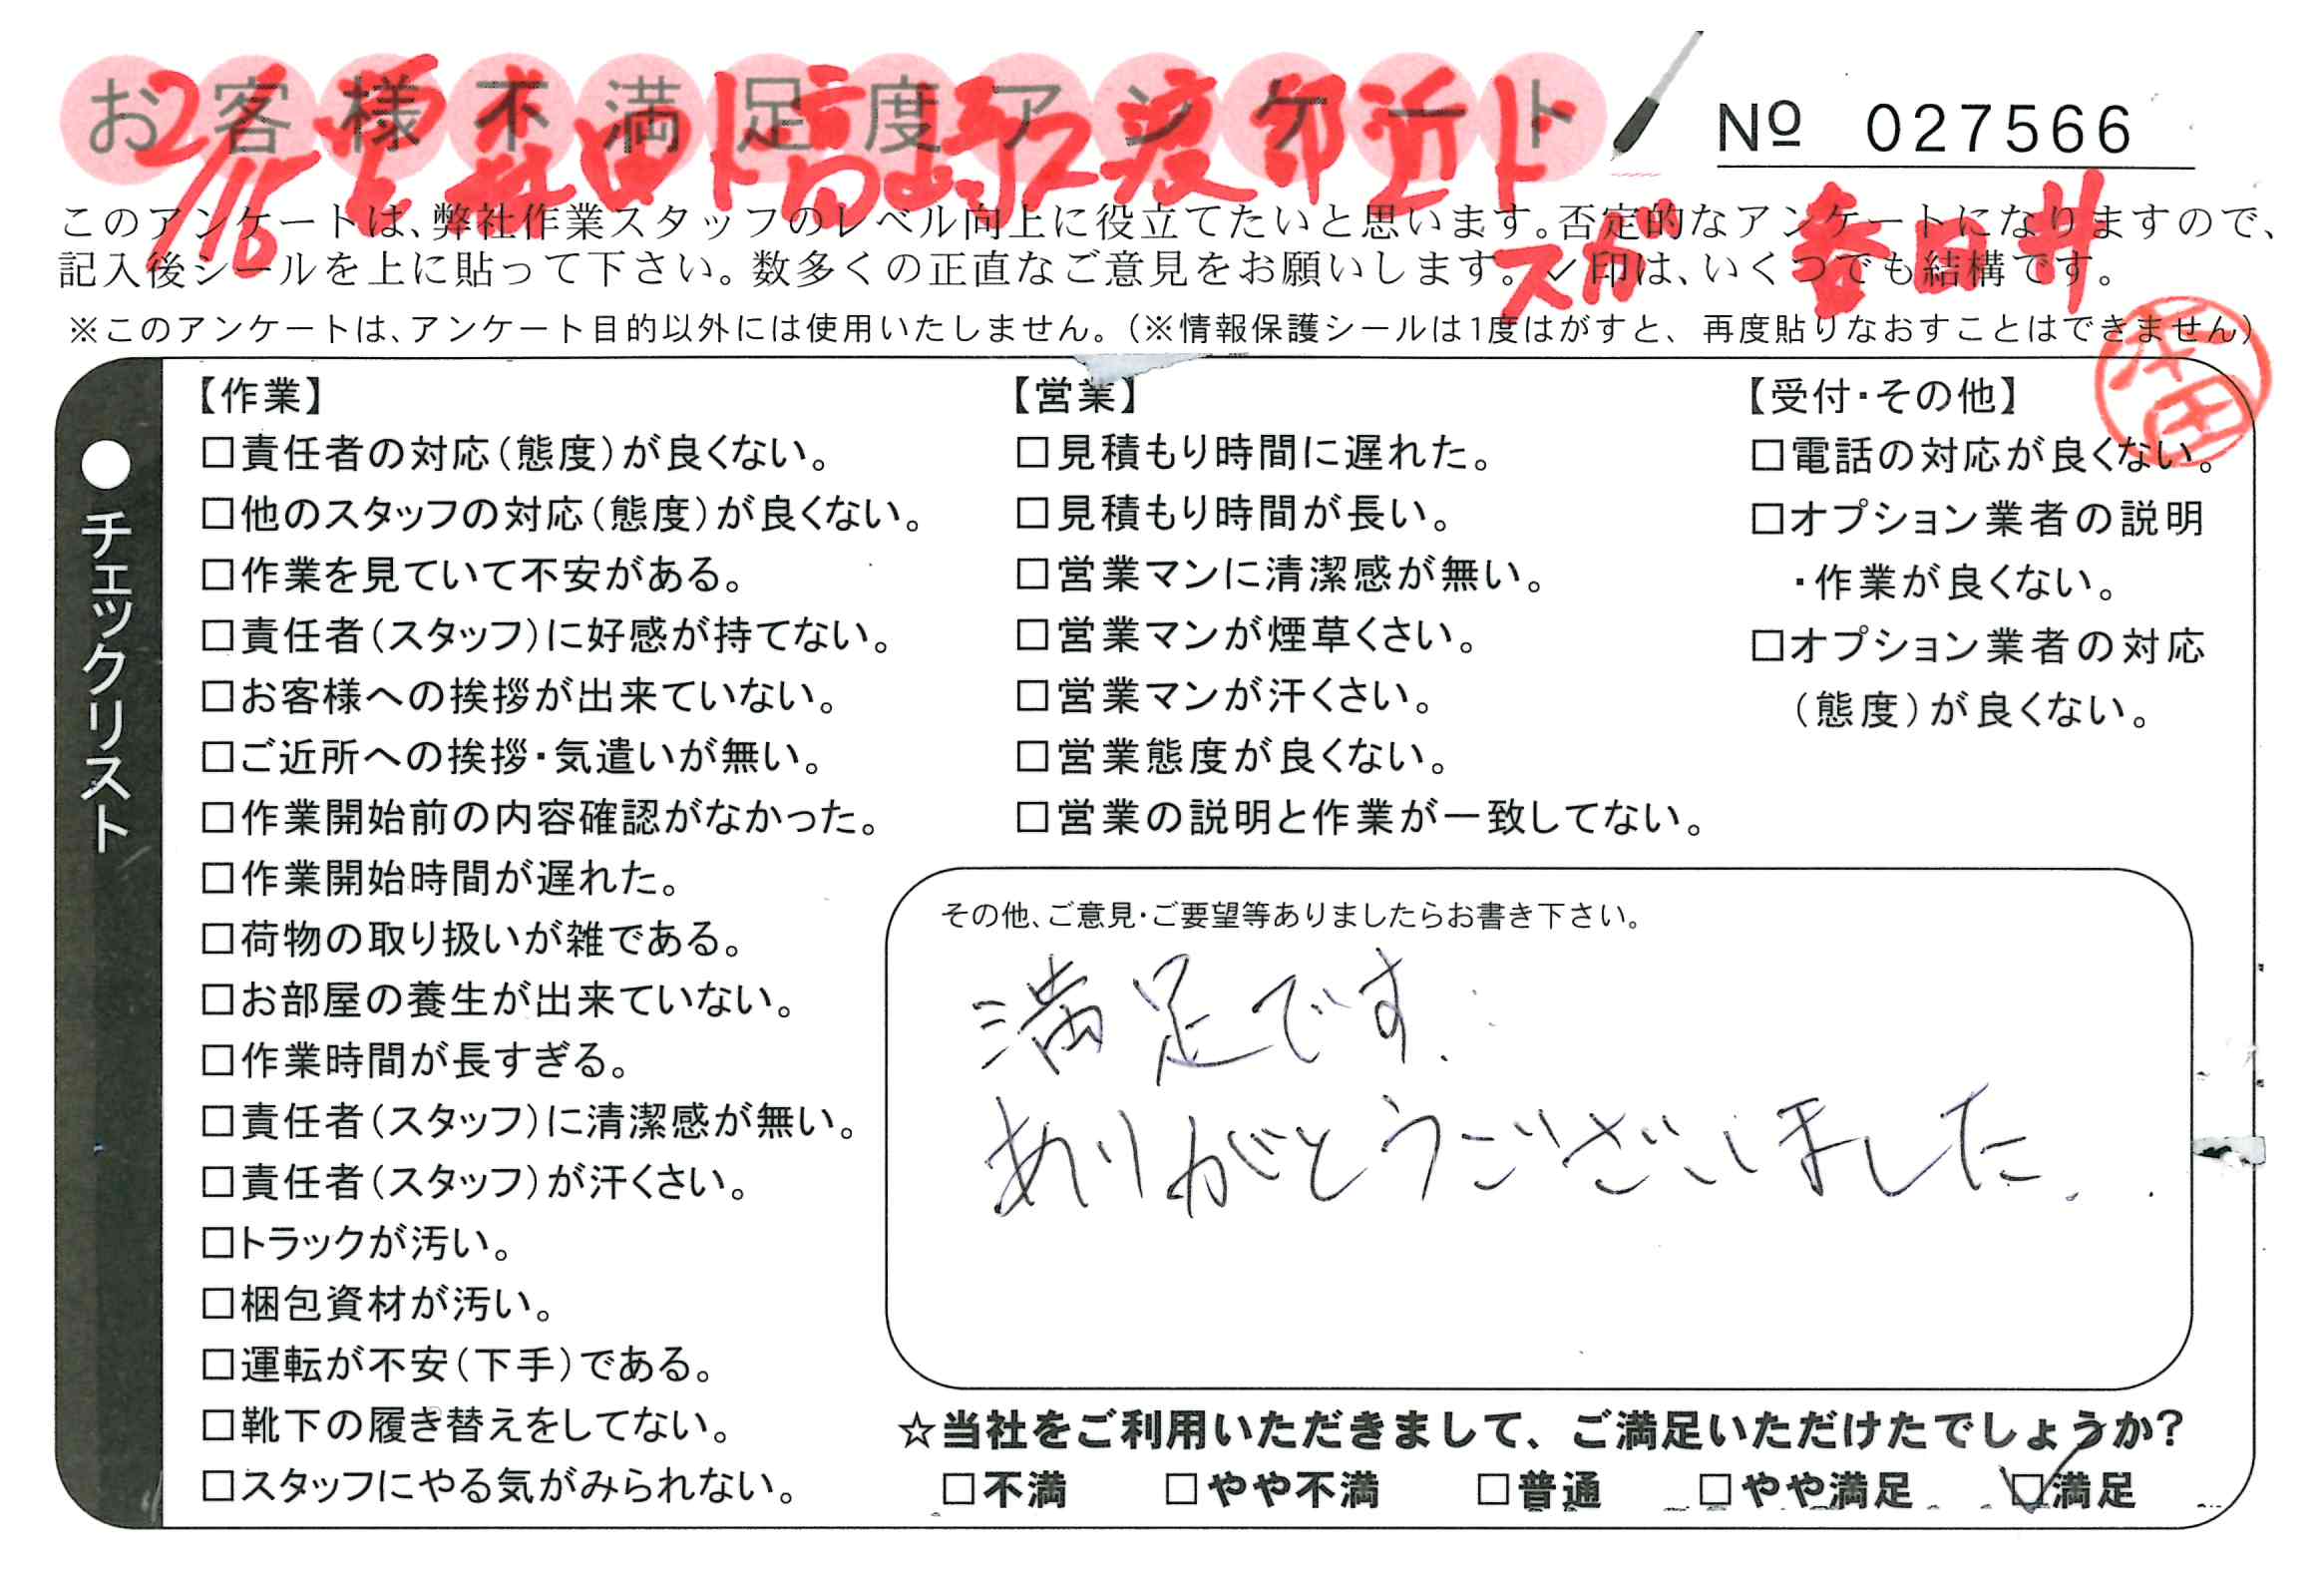 お客様不満足度アンケート
№ 027566
2/15 森田ト高崎2渡部近ト
スガ 春日井
このアンケートは、弊社作業スタッフのレベル向上に役立てたいと思います。否定的なアンケートになりますので、
記入後シールを上に貼って下さい。数多くの正直なご意見をお願いします。✓印は、いくつでも結構です。
※このアンケートは、アンケート目的以外には使用いたしません。(※情報保護シールは1度はがすと、再度貼りなおすことはできません)
●チェックリスト
【作業】
□責任者の対応(態度)が良くない。
□他のスタッフの対応(態度)が良くない。
□作業を見ていて不安がある。
□責任者(スタッフ)に好感が持てない。
□お客様への挨拶が出来ていない。
□ご近所への挨拶・気遣いが無い。
□作業開始前の内容確認がなかった。
□作業開始時間が遅れた。
□荷物の取り扱いが雑である。
□お部屋の養生が出来ていない。
□作業時間が長すぎる。
□責任者(スタッフ)に清潔感が無い。
□責任者(スタッフ)が汗くさい。
□トラックが汚い。
□梱包資材が汚い。
□運転が不安(下手)である。
□靴下の履き替えをしてない。
□スタッフにやる気がみられない。
【営業】
□見積もり時間に遅れた。
□見積もり時間が長い。
□営業マンに清潔感が無い。
□営業マンが煙草くさい。
□営業マンが汗くさい。
□営業態度が良くない。
□営業の説明と作業が一致してない。
【受付・その他】
□電話の対応が良くない。
□オプション業者の説明
・作業が良くない。
□オプション業者の対応
(態度)が良くない。
その他、ご意見・ご要望等ありましたらお書き下さい。
満足です.
ありがとうございました.
☆当社をご利用いただきまして、ご満足いただけたでしょうか?
□不満 □やや不満 □普通 □やや満足 ☑満足